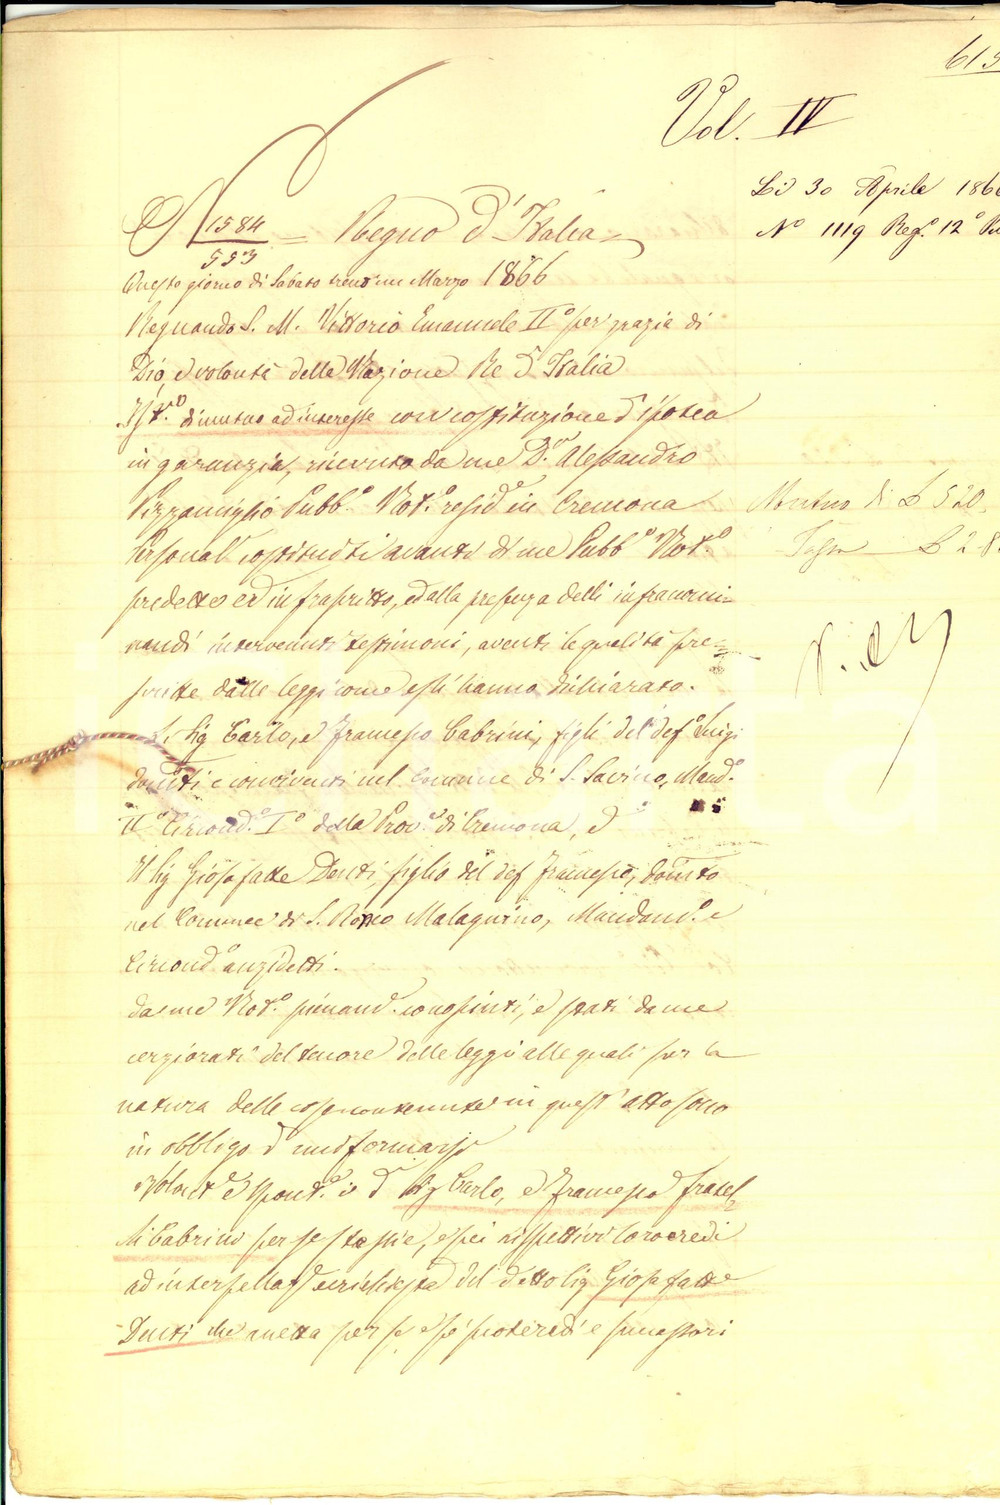 615
Vol. IV
Li 30 Aprile 186
N° 1119 Reg.° 12°
N 1584 = Regno d'Italia
553
Questo giorno di Sabato trent'un Marzo 1866
Regnando S. M. Vittorio Emanuele II° per grazia di
Dio, e volontà della Nazione Re d'Italia
Ist.° di mutuo ad interesse con costituzione d'ipoteca
in garanzia, ricevuto da me D.r Alessandro
Pizzamiglio Pubb.° Not.° resid.e in Cremona
Mutuo di L 520.
Personal.e costituiti avanti di me Pubb.° Not.°
Tassa L 2.8
predetto ed infrascritto, ed alla presenza delli infranomi=
nandi intervenuti testimoni, aventi le qualità pre=
scritte dalle leggi come essi hanno dichiarato.
Li Sig Carlo, e Francesco Cabrini, figli del def.° Luigi
domiti e conviventi nel Comune di S. Savino, Mand.°
II° Circond.° I° della Prov.a di Cremona, e
Il Sig Giosafatte Denti, figlio del def Francesco, domito
nel Comune di S. Rocco Malagnino, Mandam.° e
Circond.° anzidetti.
da me Not.° conosciuti, e stati da me
cerziorati del tenore delle leggi alle quali per la
natura delle cose contenute in quest'atto sono
in obbligo d'uniformarsi
Volont.e e Spont.e i d.i Sig Carlo, e Francesco fratel=
li Cabrini per se stessi, e pei rispettivi loro eredi
ad interpellaz.e e richiesta del detto Sig Giosafatte
Denti che accetta per se, e suoi eredi e successori